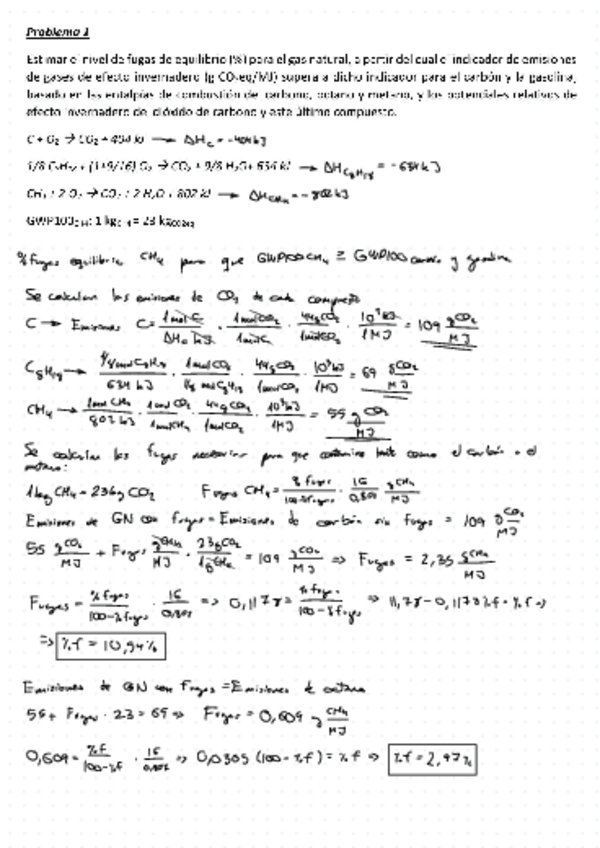 Problema 1
Estimar el nivel de fugas de equilibrio (%) para el gas natural, a partir del cual el indicador de emisiones
de gases de efecto invernadero (g CO₂eq/MJ) supera a dicho indicador para el carbón y la gasolina,
basado en las entalpías de combustión del carbono, octano y metano, y los potenciales relativos de
efecto invernadero del dióxido de carbono y este último compuesto.
C + O₂ → CO₂ + 404 kJ → ΔHc = -404 kJ
1/8 C₈H₁₈ + (1+9/16) O₂ → CO₂ + 9/8 H₂O + 634 kJ → ΔH C₈H₁₈ = -634 kJ
CH₄ + 2 O₂ → CO₂ + 2 H₂O + 802 kJ → ΔH CH₄ = -802 kJ
GWP100 CH4: 1 kg CH4 = 23 kg CO2eq
% fugas equilibrio CH₄ para que GWP100 CH₄ ≥ GWP100 carbón y gasolina
Se calculan las emisiones de CO₂ de cada compuesto
C → Emisiones C = 1 mol C / ΔHc kJ · 1 mol CO₂ / 1 mol C · 44 g CO₂ / 1 mol CO₂ · 10³ kJ / 1 MJ = 109 g CO₂ / MJ
C₈H₁₈ → 1/8 mol C₈H₁₈ / 634 kJ · 1 mol CO₂ / 1/8 mol C₈H₁₈ · 44 g CO₂ / 1 mol CO₂ · 10³ kJ / 1 MJ = 69 g CO₂ / MJ
CH₄ → 1 mol CH₄ / 802 kJ · 1 mol CO₂ / 1 mol CH₄ · 44 g CO₂ / 1 mol CO₂ · 10³ kJ / 1 MJ = 55 g CO₂ / MJ
Se calculan las fugas necesarias para que contamine tanto como el carbón o el
metano:
1 kg CH₄ = 23 kg CO₂ Fugas CH₄ = % fugas / 100-% fugas · 16 / 0,802 g CH₄ / MJ
Emisiones de GN con fugas = Emisiones de carbón sin fugas = 109 g CO₂ / MJ
55 g CO₂ / MJ + Fugas g CH₄ / MJ · 23 g CO₂ / 1 g CH₄ = 109 g CO₂ / MJ ⇒ Fugas = 2,35 g CH₄ / MJ
Fugas = % fugas / 100-% fugas · 16 / 0,802 ⇒ 0,1178 = % fugas / 100-% fugas ⇒ 11,78 - 0,1178 % f = % f ⇒
⇒ % f = 10,94 %
Emisiones de GN con fugas = Emisiones de octano
55 + Fugas · 23 = 69 ⇒ Fugas = 0,609 g CH₄ / MJ
0,609 = % f / 100-% f · 16 / 0,802 ⇒ 0,0305 (100 - % f) = % f ⇒ % f = 2,97 %